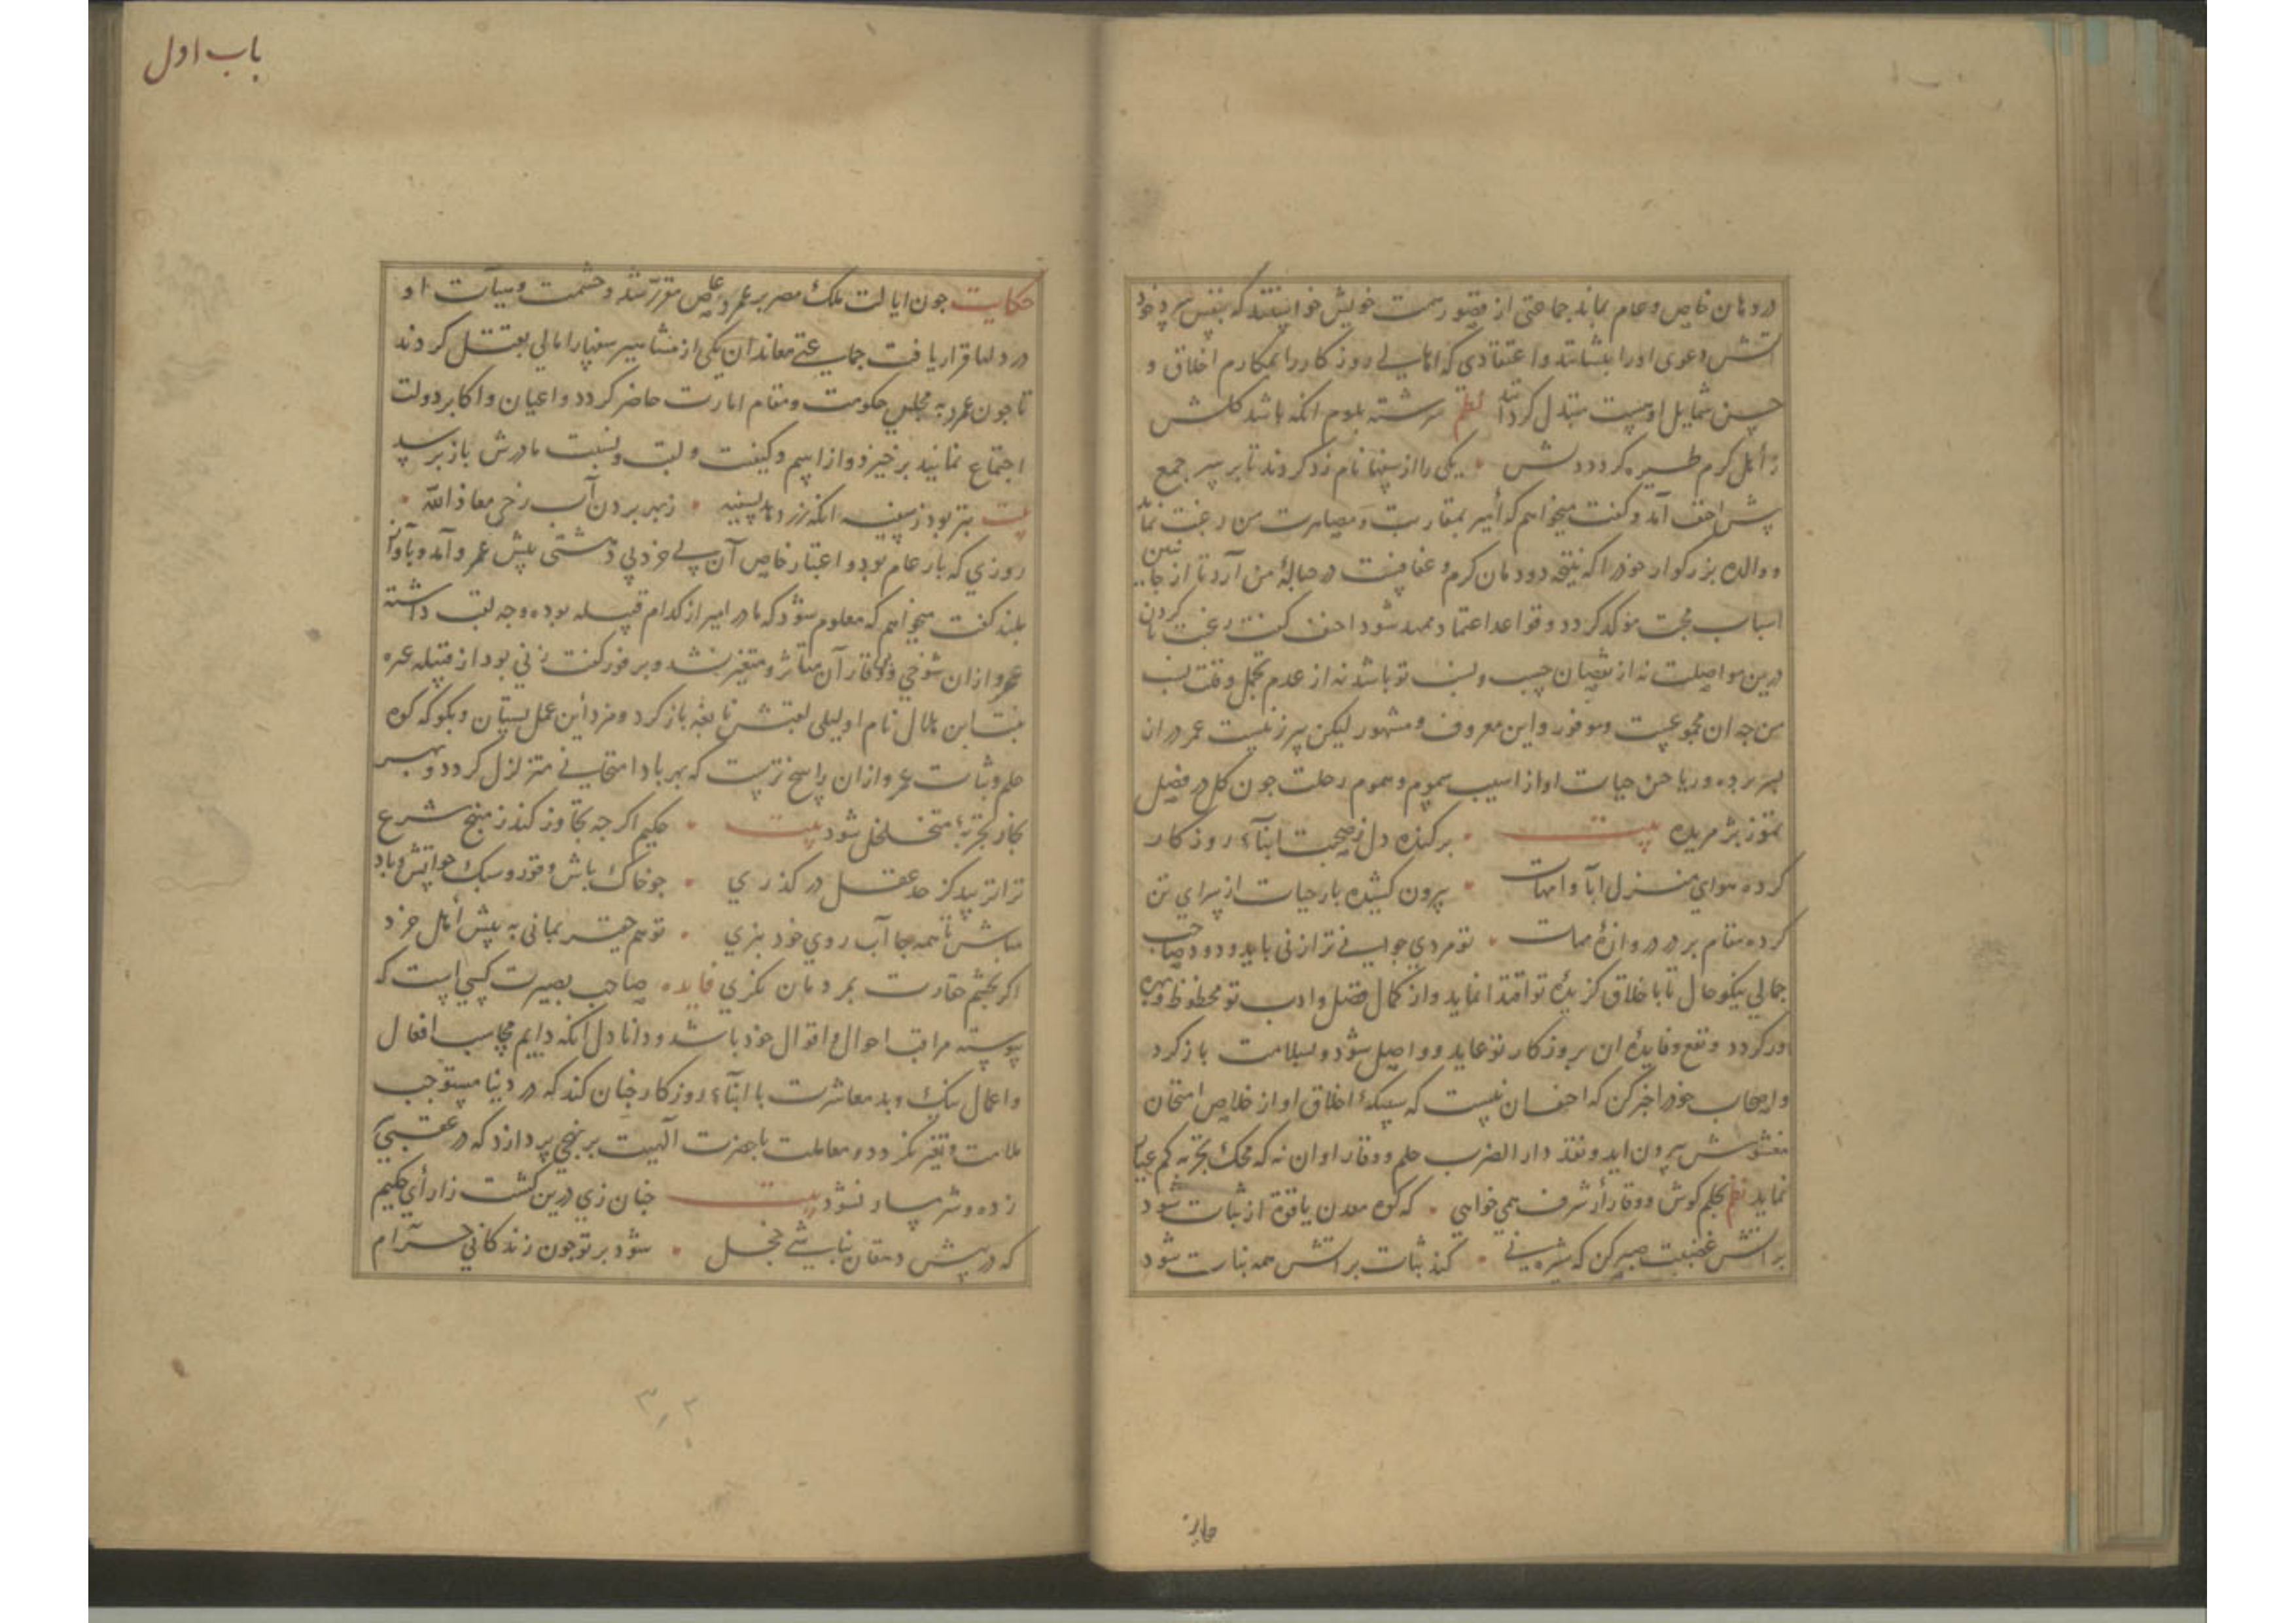 در دهان خاص و عام بماند جماعتی از قصور همت خویش خواستند که بنفس سرد خود
آتش دعوی او را بنشانند و اعتقادی که اهالی روزکار را بمکارم اخلاق و
حسن شمایل اوست مبدل کردانند نظم سرشته بلوم انکه باشد کلش
ز اهل کرم طیره کردد دلش یکی را از سفها نام زد کردند تا بر سر جمع
پیش احنف آمد و کفت میخواهم که امیر بمقاربت و مصاهرت من رغبت نماید
و والده بزرکوار خود را که نتیجه دودمان کرم و عفافست در حباله من آرد تا از جانبین
اسباب محبت مؤکد کردد و قواعد اعتماد ممهد شود احنف کفت رغبت نا کردن
درین مواصلت نه از نقصان حسب و نسب تو باشد نه از عدم تجمل و قلت نسب
من جه ان مجموعست و موفور و این معروف و مشهور لیکن پیر زنیست عمر در ان
بسر برده و ریاحین حیات او از اسیب سموم و هموم رحلت جون کل در فصل
تموز پژمریده بیت برکنده دل ز صحبت ابناء روزکار
کرده هوای منزل ابا و امهات بیرون کشیده بار حیات از سرای تن
کرده مقام بر در دروازه ممات تو مردی جوانی ترا زنی باید ودود صاحب
جمالی نیکو حال تا باخلاق کزیده تو اقتدا نماید و از کمال فضل و ادب تو محظوظ و بهره
ور کردد و نفع و فایده ان بروزکار تو عاید و واصل شود و بسلامت باز کرد
و اصحاب خود را خبر کن که احنف ان نیست که سبیکه اخلاق او از خلاص امتحان
مغشوش بیرون اید و نقد دار الضرب حلم و وقار او ان نه که محک تجربه کم عیار
نماید نظم بحلم کوش و وقار ار شرف همی خواهی که کوه معدن یاقوة از ثبات شود
بر آتش غضبت صبر کن که شیرینی کند ثبات بر آتش همه نبات شود
جابر
باب اول
حکایت جون ایالت ملک مصر بر عمرو عاص مقرر شد و حشمت و هیأت او
در دلها قرار یافت جماعتی معاندان یکی از مشاهیر سفها را مالی بقتل کردند
تا جون عمرو به مجلس حکومت و مقام امارت حاضر کردد و اعیان و اکابر دولت
اجتماع نمایند برخیزد و از اسم و کنیت و لقب و نسبت مادرش باز پرسد
بیت بتر بود ز سفیه انکه زر دهد بسفیه زبهر بردن آب رخی معاذ الله
روزی که بار عام بود و اعتبار خاص آن بی خرد پی دشتی پیش عمرو آمد و بآواز
بلند کفت میخواهم که معلوم شود که مادر امیر از کدام قبیله بوده و جه لقب داشته
عمرو از ان شوخی و وقار آن متاثر و متغیر نشد و بر فور کفت زنی بود از قبیله عنزه
بنت ابن هلال نام او لیلی لقبش نابغه باز کرد و مزد این عمل بستان و بکو که کوه
حلم و ثبات عمرو از ان راسخ ترست که بهر باد امتحانی متزلزل کردد و بهر
بخار تجربه متخلخل شود بیت حکیم اکر جه تجاوز کند ز منهج شرع
ترا نرسد کز حد عقل در کذری جو خاک باش و قور و سبک جو آتش و باد
مباش تا همه جا آب روی خود ببری تو هم حقیر نمانی به پیش اهل خرد
اکر بجشم حقارت بمردمان نکری فایده صاحب بصیرت کسی است که
پیوسته مراقب احوال و اقوال خود باشد و دانا دل آنکه دایم محاسب افعال
و اعمال نیک و بد معاشرت با ابناء روزکار جنان کند که در دنیا مستوجب
ملامت و تغیر نکردد و معاملت با حضرت الهیت بر نهجی پردازد که در عقبی
زده و شرمسار نشود بیت جنان زی درین کشت زار ای حکیم
که در پیش دهقان نباشی خجل شود بر تو جون زندکانی حرام